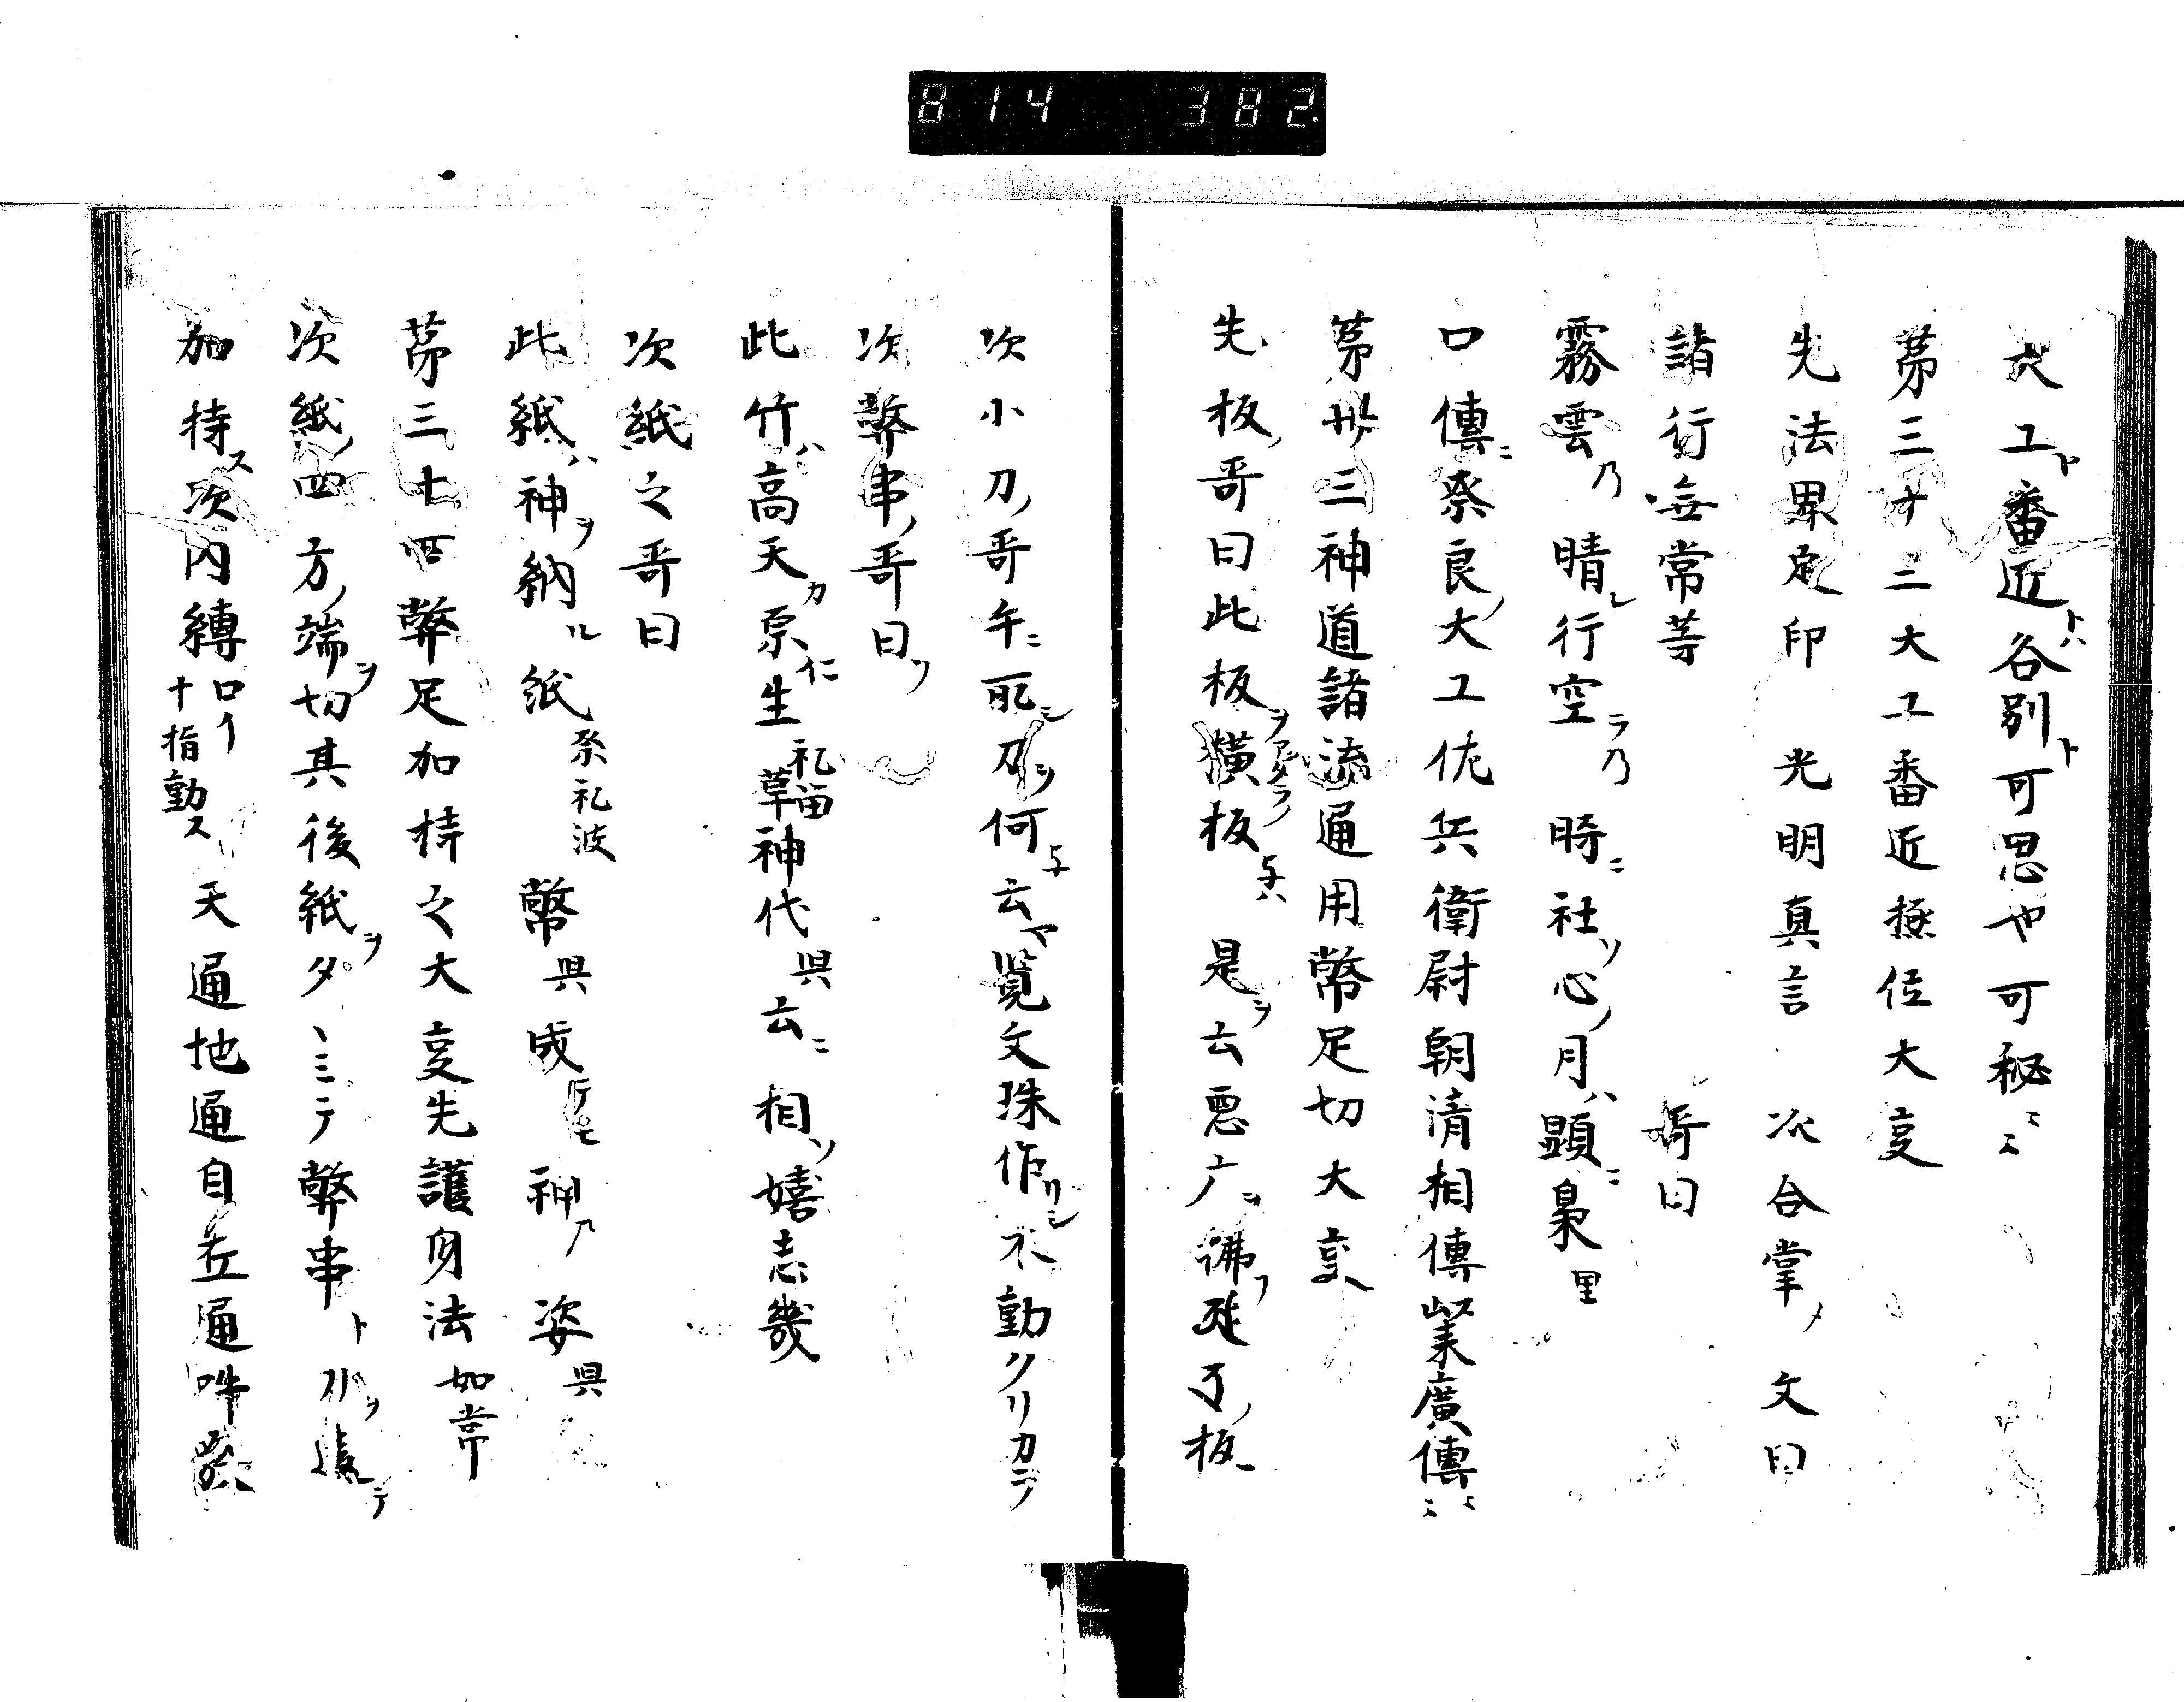 814 382
大工ト番匠トハ各別ト可思也可秘々々
第三十二大工番匠極位大事
先法界定印 光明真言 次合掌ノ文曰
諸行無常等 哥曰
霧雲乃晴レ行空ラ乃時ニ社ソ心ノ月ハ顕ニ梟里
口傳ニ奈良ノ大工佐兵衛尉朝清相傳業廣傳々々
第卅三神道諸流通用幣足切大事
先板ノ哥曰此板ヲアタラ横板与ハ是ヲ云悪广ヲ沸フ
次小刀ノ哥年ニ死シ刀ヲ何与云ヤ覧文珠作リシ不動クリカラ
次幣串ノ哥曰ク
此竹ハ高天カ原仁生礼留草神代具云ニ相ソ嬉志幾
次紙之哥曰
此紙ハ神ヲ納ル紙奈礼波幣具成神乃姿具
第三十四幣足加持之大事先護身法如常
次紙ノ四方ノ端ヲ切其後紙ヲタヽミテ幣串ト
加持ス次内縛ロイ十指動ス天通地通自在通